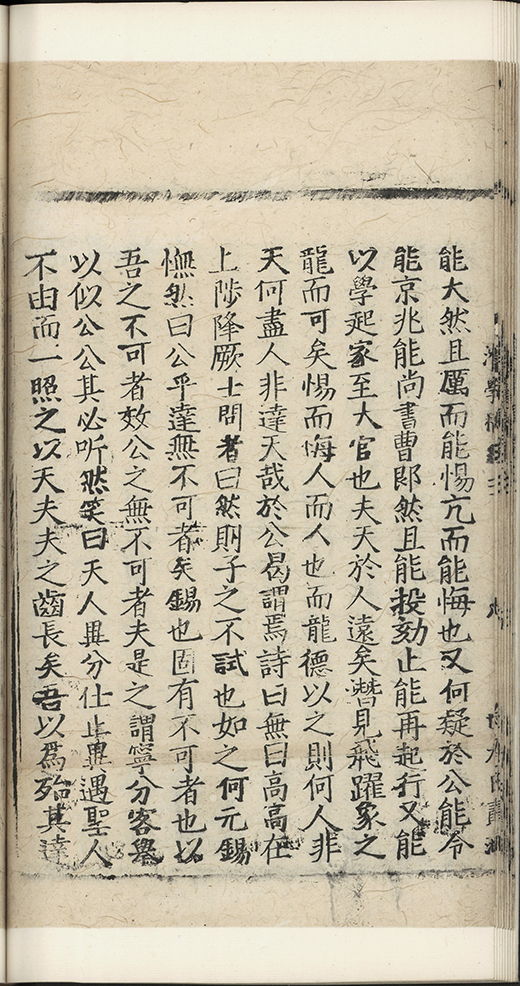 能大然且厲而能惕亢而能悔也又何疑於公能令
能京兆能尚書曹郎然且能投劾止能再起行又能
以學起家至大官也夫天於人遠矣潛見飛躍象之
龍而可矣惕而悔人而人也而龍德以之則何人非
天何盡人非達天哉於公曷謂焉詩曰無曰高高在
上陟降厥士問者曰然則子之不試也如之何元錫
憮然曰公乎達無不可者矣錫也固有不可者也以
吾之不可者效公之無不可者夫是之謂寧分客舉
以似公公其必听然笑曰天人異分仕止異遇聖人
不由而一照之以天夫夫之齒長矣吾以爲殆其達